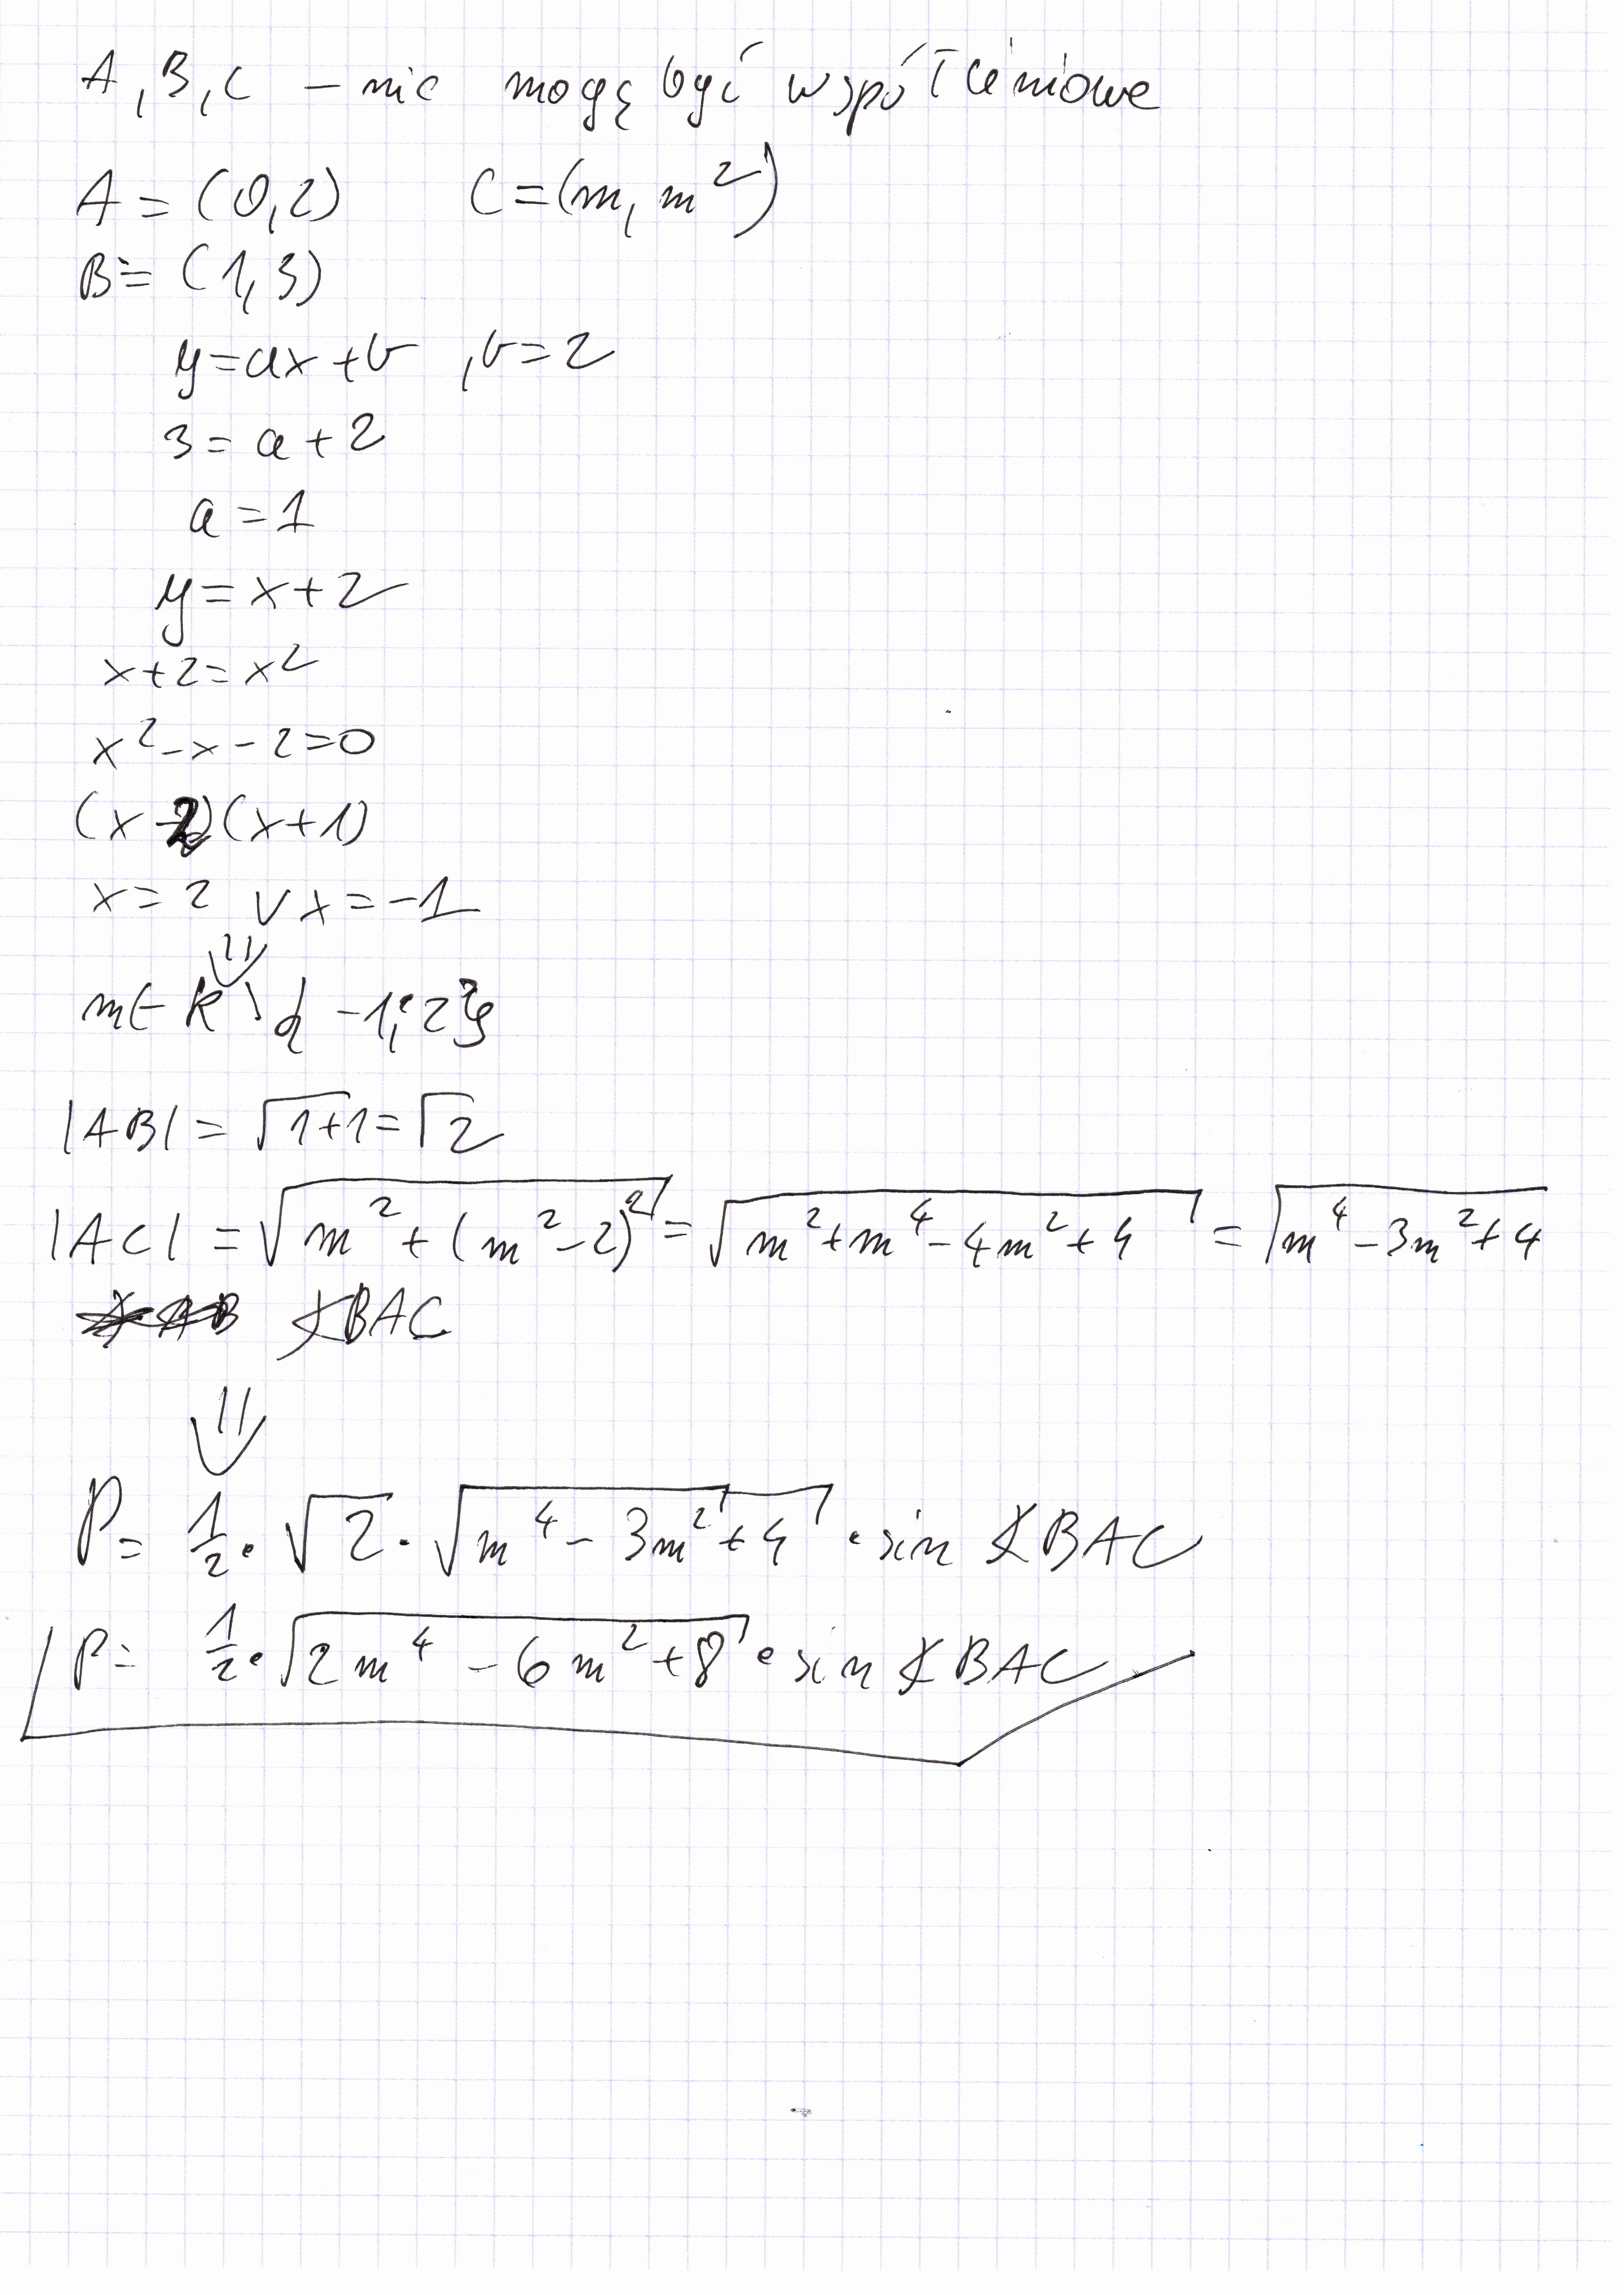 A, B, C – nie mogą być współliniowe
A = (0,2) C = (m, m²)
B = (1,3)
y = ax + b , b = 2
3 = a + 2
a = 1
y = x + 2
x + 2 = x²
x² - x - 2 = 0
(x - 2)(x + 1)
x = 2 ∨ x = -1
⇓
m ∈ R \ {-1; 2}
|AB| = √1+1 = √2
|AC| = √(m² + (m² - 2)²) = √(m² + m⁴ - 4m² + 4) = √(m⁴ - 3m² + 4)
∢BAC
⇓
P = 1/2 · √2 · √(m⁴ - 3m² + 4) · sin ∢BAC
P = 1/2 · √(2m⁴ - 6m² + 8) · sin ∢BAC